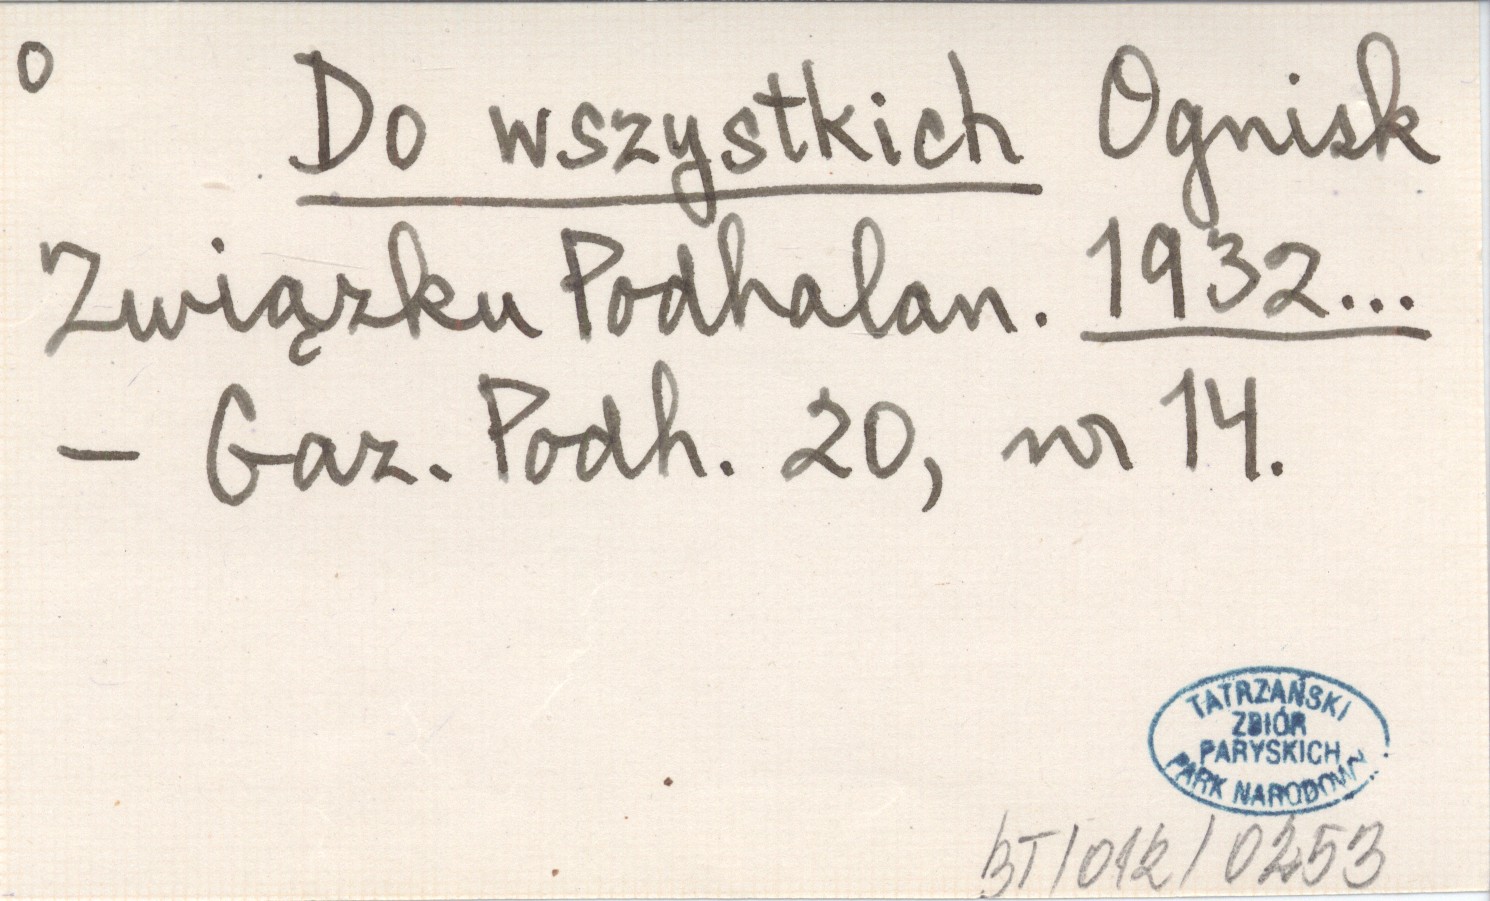 o Do wszystkich Ognisk
Związku Podhalan. 1932...
— Gaz. Podh. 20, nr 14.
TATRZAŃSKI
ZBIÓR
PARYSKICH
PARK NARODOWY
BT/012/0253